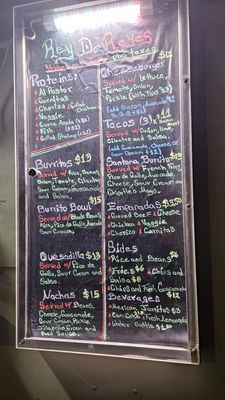 Rey De Reyes
plus taxes
Proteins:
Al Pastor
Carnitas
Chorizo
Grilled Chicken
Veggie
Carne Asada
Fish
Grilled Shrimp
Burritos $13
Served w/ Rice, Beans,
Onion, Tomato, Cilantro,
Sour Cream, Guacamole,
and Salsa
Burrito Bowl $15
Served w/ Black Beans,
Rice, Pico de Gallo, Avocado
Sour Cream
Quesadilla $13
Served w/ Pico de
Gallo, Sour Cream and
Salsa
Nachos $15
Served w/ Beans,
Cheese, Guacamole,
Sour Cream, Pickle
Jalapeño
Cheeseburger $14
Served w/ lettuce,
Tomato, Onion,
Pickle
Tacos (3) $11
Served w/ Onion, lime,
Cilantro and Salsa
Santana Burrito
Served w/ French Fries,
Pico de Gallo, Avocado,
Cheese, Sour Cream and
Chipotle Mayo
Empanadas $3.50
Ground Beef & Cheese
Chicken & Veggie
Chorizo & Carnitas
Sides
Rice and Beans $6
Fries $6
Chips and
Salsa
Chips and Fresh Guacamole
Beverages $12
Mexican Jarritos $3
Fresh Lemonade
Water Bottle $1.50